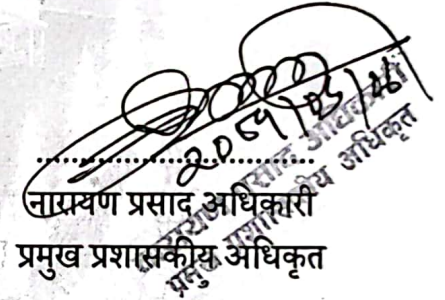 2081/05/06
नारायण प्रसाद अधिकारी
प्रमुख प्रशासकीय अधिकृत
नारायण प्रसाद अधिकारी
प्रमुख प्रशासकीय अधिकृत